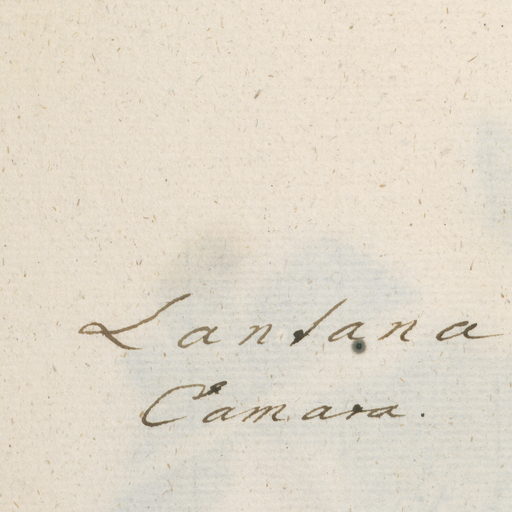 Lantana
Camara.